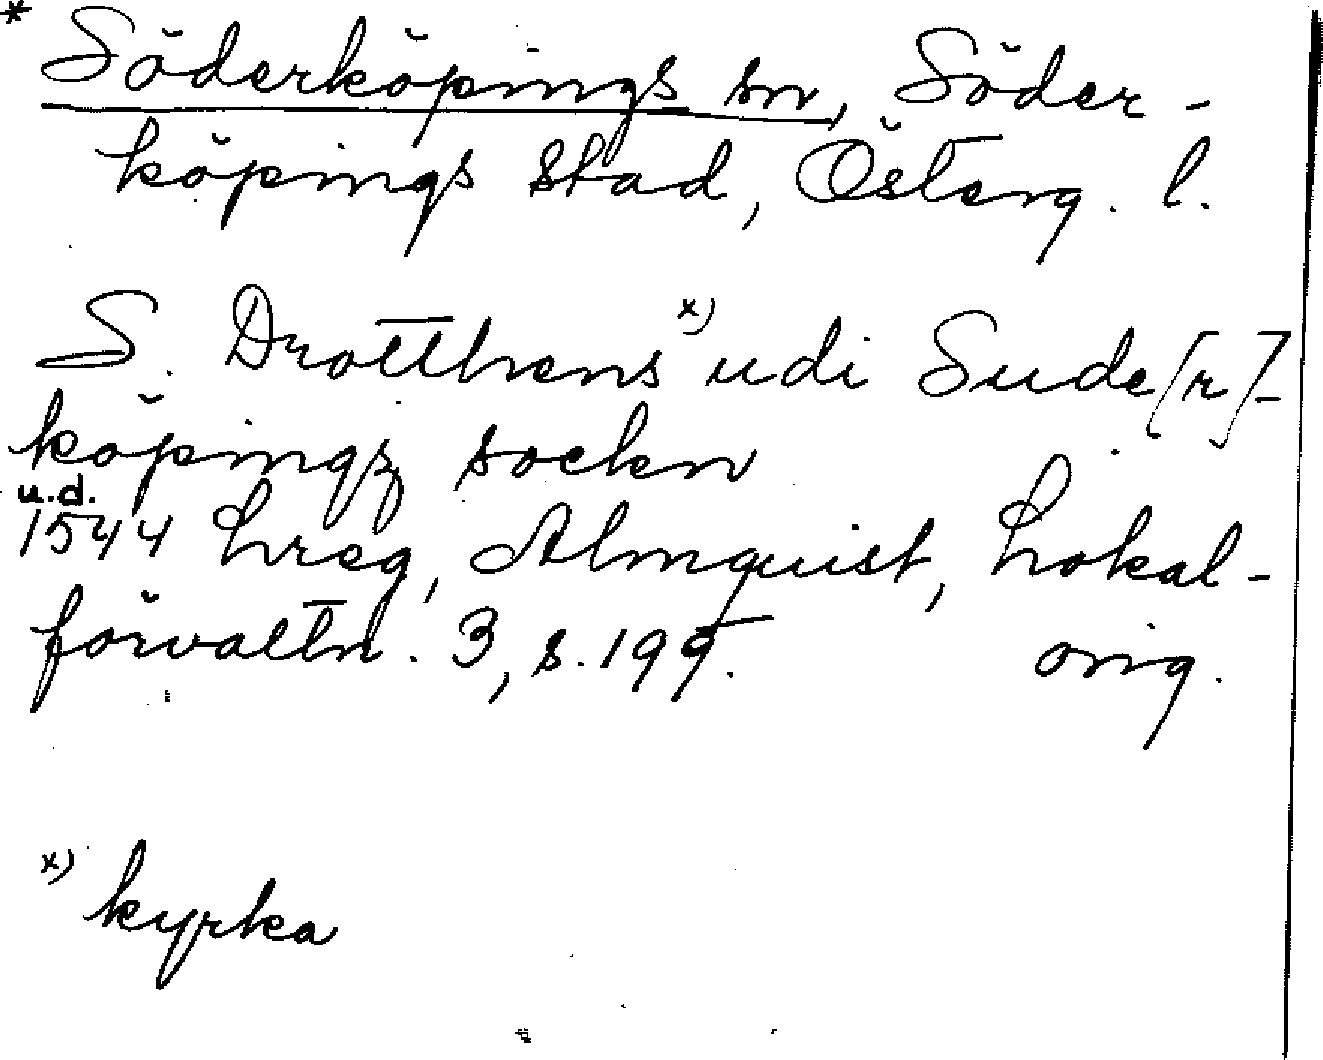 * Söderköpings sn, Söder-
köpings stad, Österg. l.
S. Drotthens x) udi Sude[r]-
köpingz sockn
u.d.
1544 Lreg, Almquist, Lokal-
förvaltn. 3, s. 199. orig.
x) kyrka